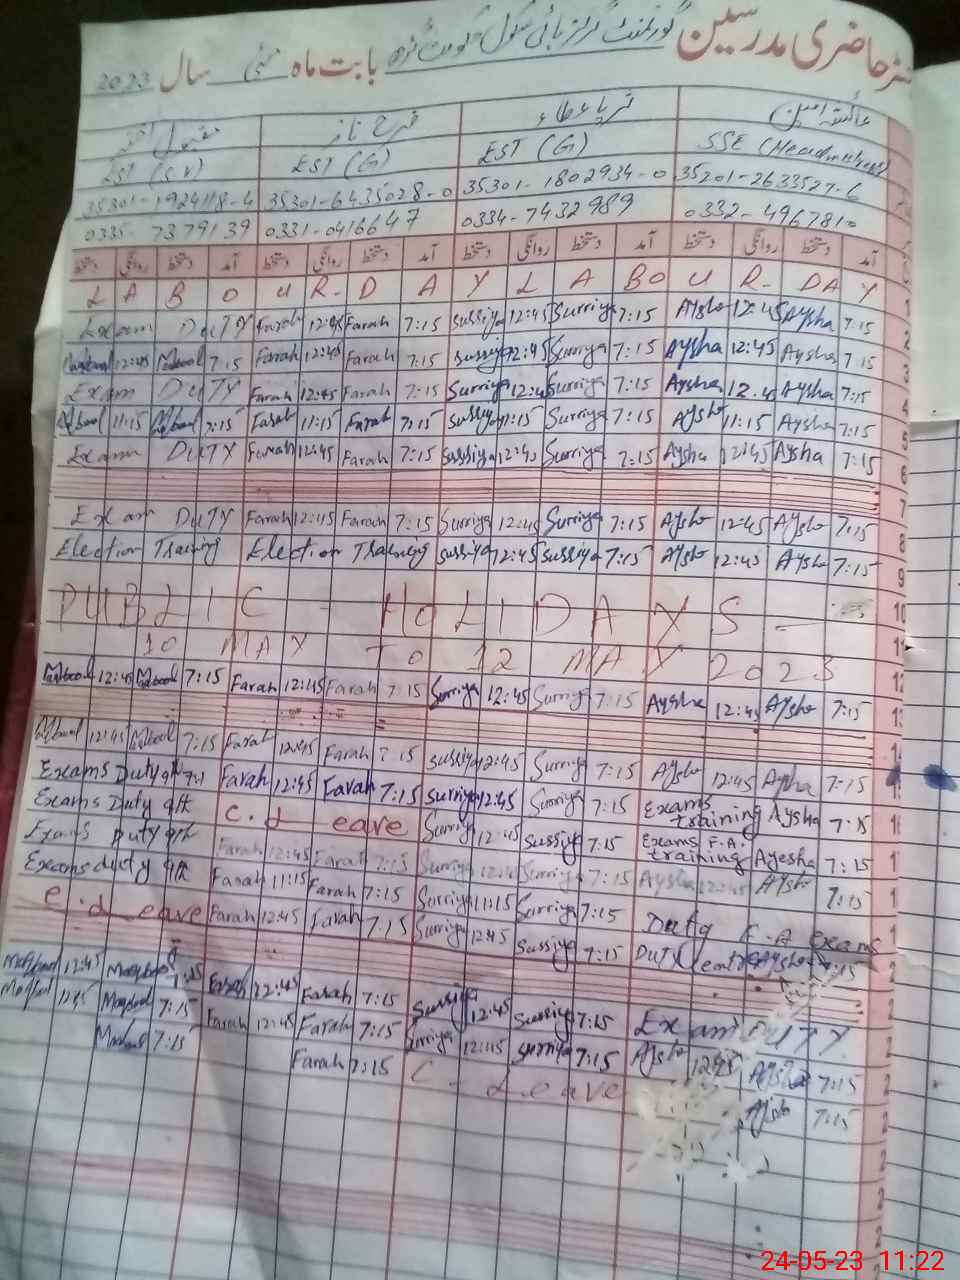 رجسٹر حاضری مدرسین گورنمنٹ گرلز ہائی سکول بابت ماہ مئی سال 2023
فرح ناز
EST (G) EST (G) SSE (Headmistress)
35301-1924118-4 35301-6435028-0 35301-1802934-0 35201-2633527-6
0335-7379139 0331-0416647 0334-7432989 0332-4967810
دستخط روانگی دستخط آمد دستخط روانگی دستخط آمد دستخط روانگی دستخط آمد دستخط روانگی دستخط آمد
LABOUR-DAY LABOUR-DAY 1
Exam DUTY Farah 12:45 Farah 7:15 Surriya 12:45 Surriya 7:15 Aysha 12:45 Aysha 7:15 2
Maqbool 12:45 Maqbool 7:15 Farah 12:45 Farah 7:15 Surriya 12:45 Surriya 7:15 Aysha 12:45 Aysha 7:15 3
Exam DUTY Farah 12:45 Farah 7:15 Surriya 12:45 Surriya 7:15 Aysha 12:45 Aysha 7:15 4
Maqbool 11:15 Maqbool 7:15 Farah 11:15 Farah 7:15 Surriya 11:15 Surriya 7:15 Aysha 11:15 Aysha 7:15 5
Exam DUTY Farah 12:45 Farah 7:15 Surriya 12:45 Surriya 7:15 Aysha 12:45 Aysha 7:15 6
7
Exam DUTY Farah 12:45 Farah 7:15 Surriya 12:45 Surriya 7:15 Aysha 12:45 Aysha 7:15 8
Election Training Election Training Surriya 12:45 Surriya 7:15 Aysha 12:45 Aysha 7:15 9
PUBLIC - HOLIDAYS - 10
10 MAY TO 12 MAY 2023 11
Maqbool 12:45 Maqbool 7:15 Farah 12:45 Farah 7:15 Surriya 12:45 Surriya 7:15 Aysha 12:45 Aysha 7:15 12
Maqbool 12:45 Maqbool 7:15 Farah 12:45 Farah 7:15 Surriya 12:45 Surriya 7:15 Aysha 12:45 Aysha 7:15
Exams Duty 9th Farah 12:45 Farah 7:15 Surriya 12:45 Surriya 7:15 Exams training Aysha 7:15
Exams Duty 9th C.Leave Surriya 12:45 Surriya 7:15 Exams F.A. training Ayesha 7:15
Exams Duty 9th Farah 12:45 Farah 7:15 Surriya 12:45 Surriya 7:15 Aysha 12:45 Aysha 7:15
Exams duty 9th Farah 11:15 Farah 7:15 Surriya 11:15 Surriya 7:15 Duty F.A exams
C.Leave Farah 12:45 Farah 7:15 Surriya 12:45 Surriya 7:15 DUTY Aysha 7:15
Maqbool 12:45 Maqbool 7:15 Farah 12:45 Farah 7:15 Surriya 12:45 Surriya 7:15 Exam DUTY
Maqbool 12:45 Maqbool 7:15 Farah 12:45 Farah 7:15 Surriya 12:45 Surriya 7:15 Aysha 12:45 Aysha 7:15
Maqbool 7:15 Farah 7:15 C-Leave Aysha 7:15
24-05-23 11:22